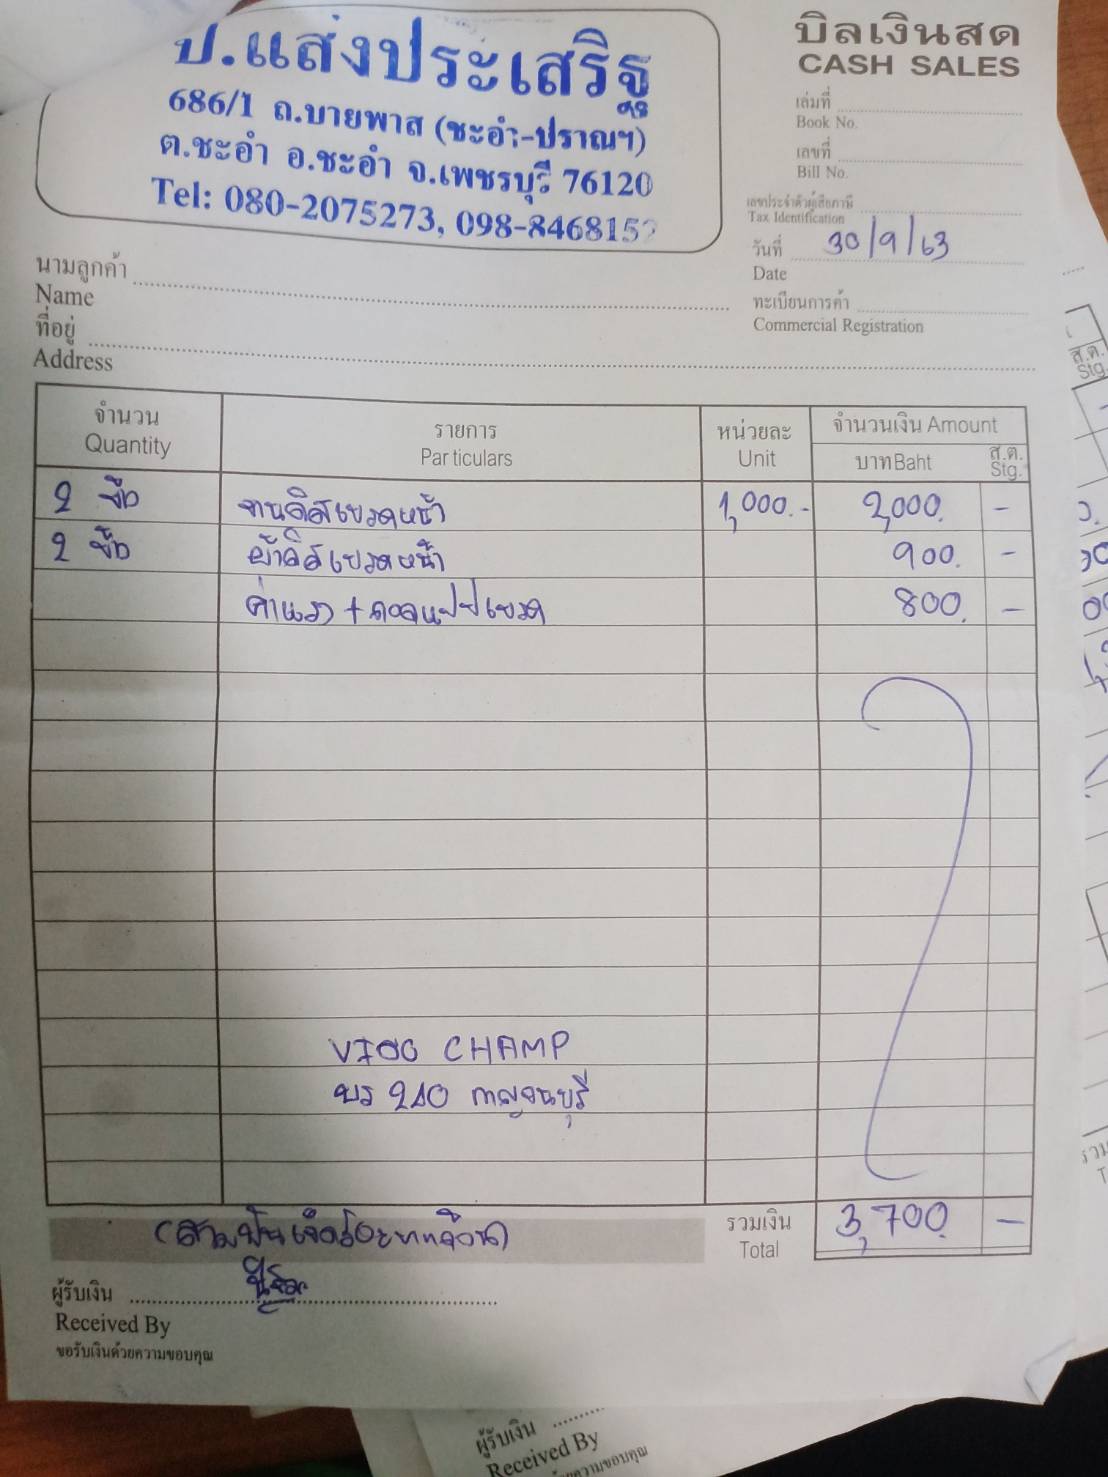 ป.แสงประเสริฐ
686/1 ถ.บายพาส (ชะอำ-ปราณฯ)
ต.ชะอำ อ.ชะอำ จ.เพชรบุรี 76120
Tel: 080-2075273, 098-8468152
บิลเงินสด
CASH SALES
เล่มที่
Book No.
เลขที่
Bill No.
เลขประจำตัวผู้เสียภาษี
Tax Identification
วันที่ 30/9/63
Date
ทะเบียนการค้า
Commercial Registration
นามลูกค้า
Name
ที่อยู่
Address
จำนวน รายการ หน่วยละ จำนวนเงิน Amount
Quantity Particulars Unit บาท Baht ส.ต. Stg.
2 จานดิสเบรคหน้า 1,000.- 2,000. -
2 ผ้าดิสเบรคหน้า 900. -
ค่าแรง + เบรค 800. -
VIGO CHAMP
240 กาญจนบุรี
(สามพันเจ็ดร้อยบาทถ้วน) รวมเงิน 3,700. -
Total
ผู้รับเงิน
Received By
ขอรับเงินด้วยความขอบคุณ
ส.ต.
Stg.
ผู้รับเงิน
Received By